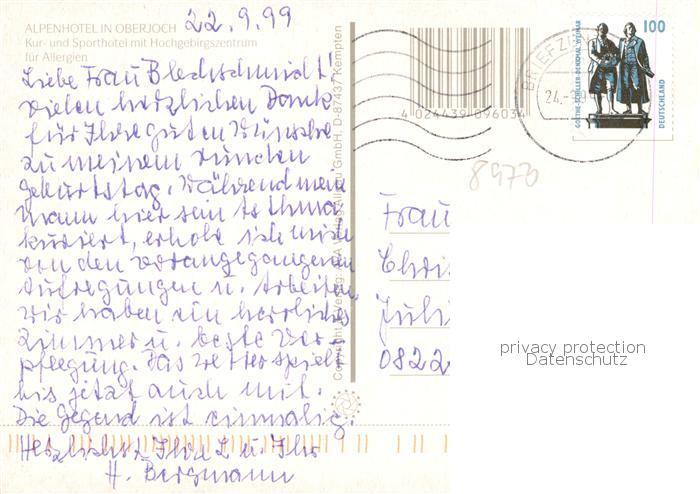 22.9.99
ALPENHOTEL IN OBERJOCH
Kur- und Sporthotel mit Hochgebirgszentrum
für Allergien
Liebe Frau Blechschmidt!
vielen herzlichen Dank
für Ihre guten Wünsche
zu meinem runden
Geburtstag. Während mein
Mann hier sein Asthma
kuriert, erhole ich mich
von den vorangegangenen
Aufregungen u. Arbeiten.
Wir haben ein herrliches
Zimmer u. beste Ver-
pflegung. Das Wetter spielt
bis jetzt auch mit.
Die Gegend ist einmalig.
Herzlichst Ihre L u. Ihr
H. Bergmann
Copyright Verlag: Allgäu GmbH, D-87437 Kempten
4 024439 096034
BRIEFZ
24.
GOETHE-SCHILLER-DENKMAL WEIMAR
100
DEUTSCHLAND
8970
Frau
Chri
Juli
0822
privacy protection
Datenschutz